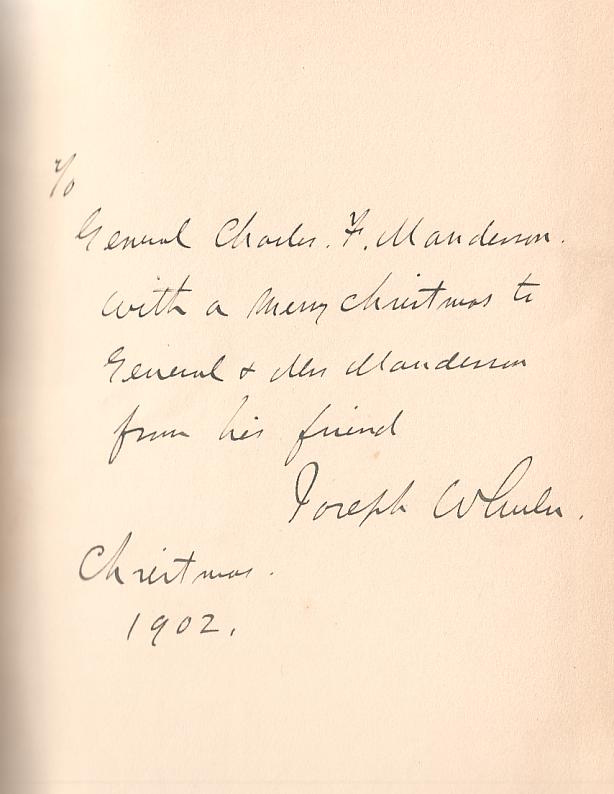 To
General Charles. F. Manderson.
with a Merry Christmas to
General & Mrs Manderson
from his friend
Joseph Wheeler.
Christmas.
1902.